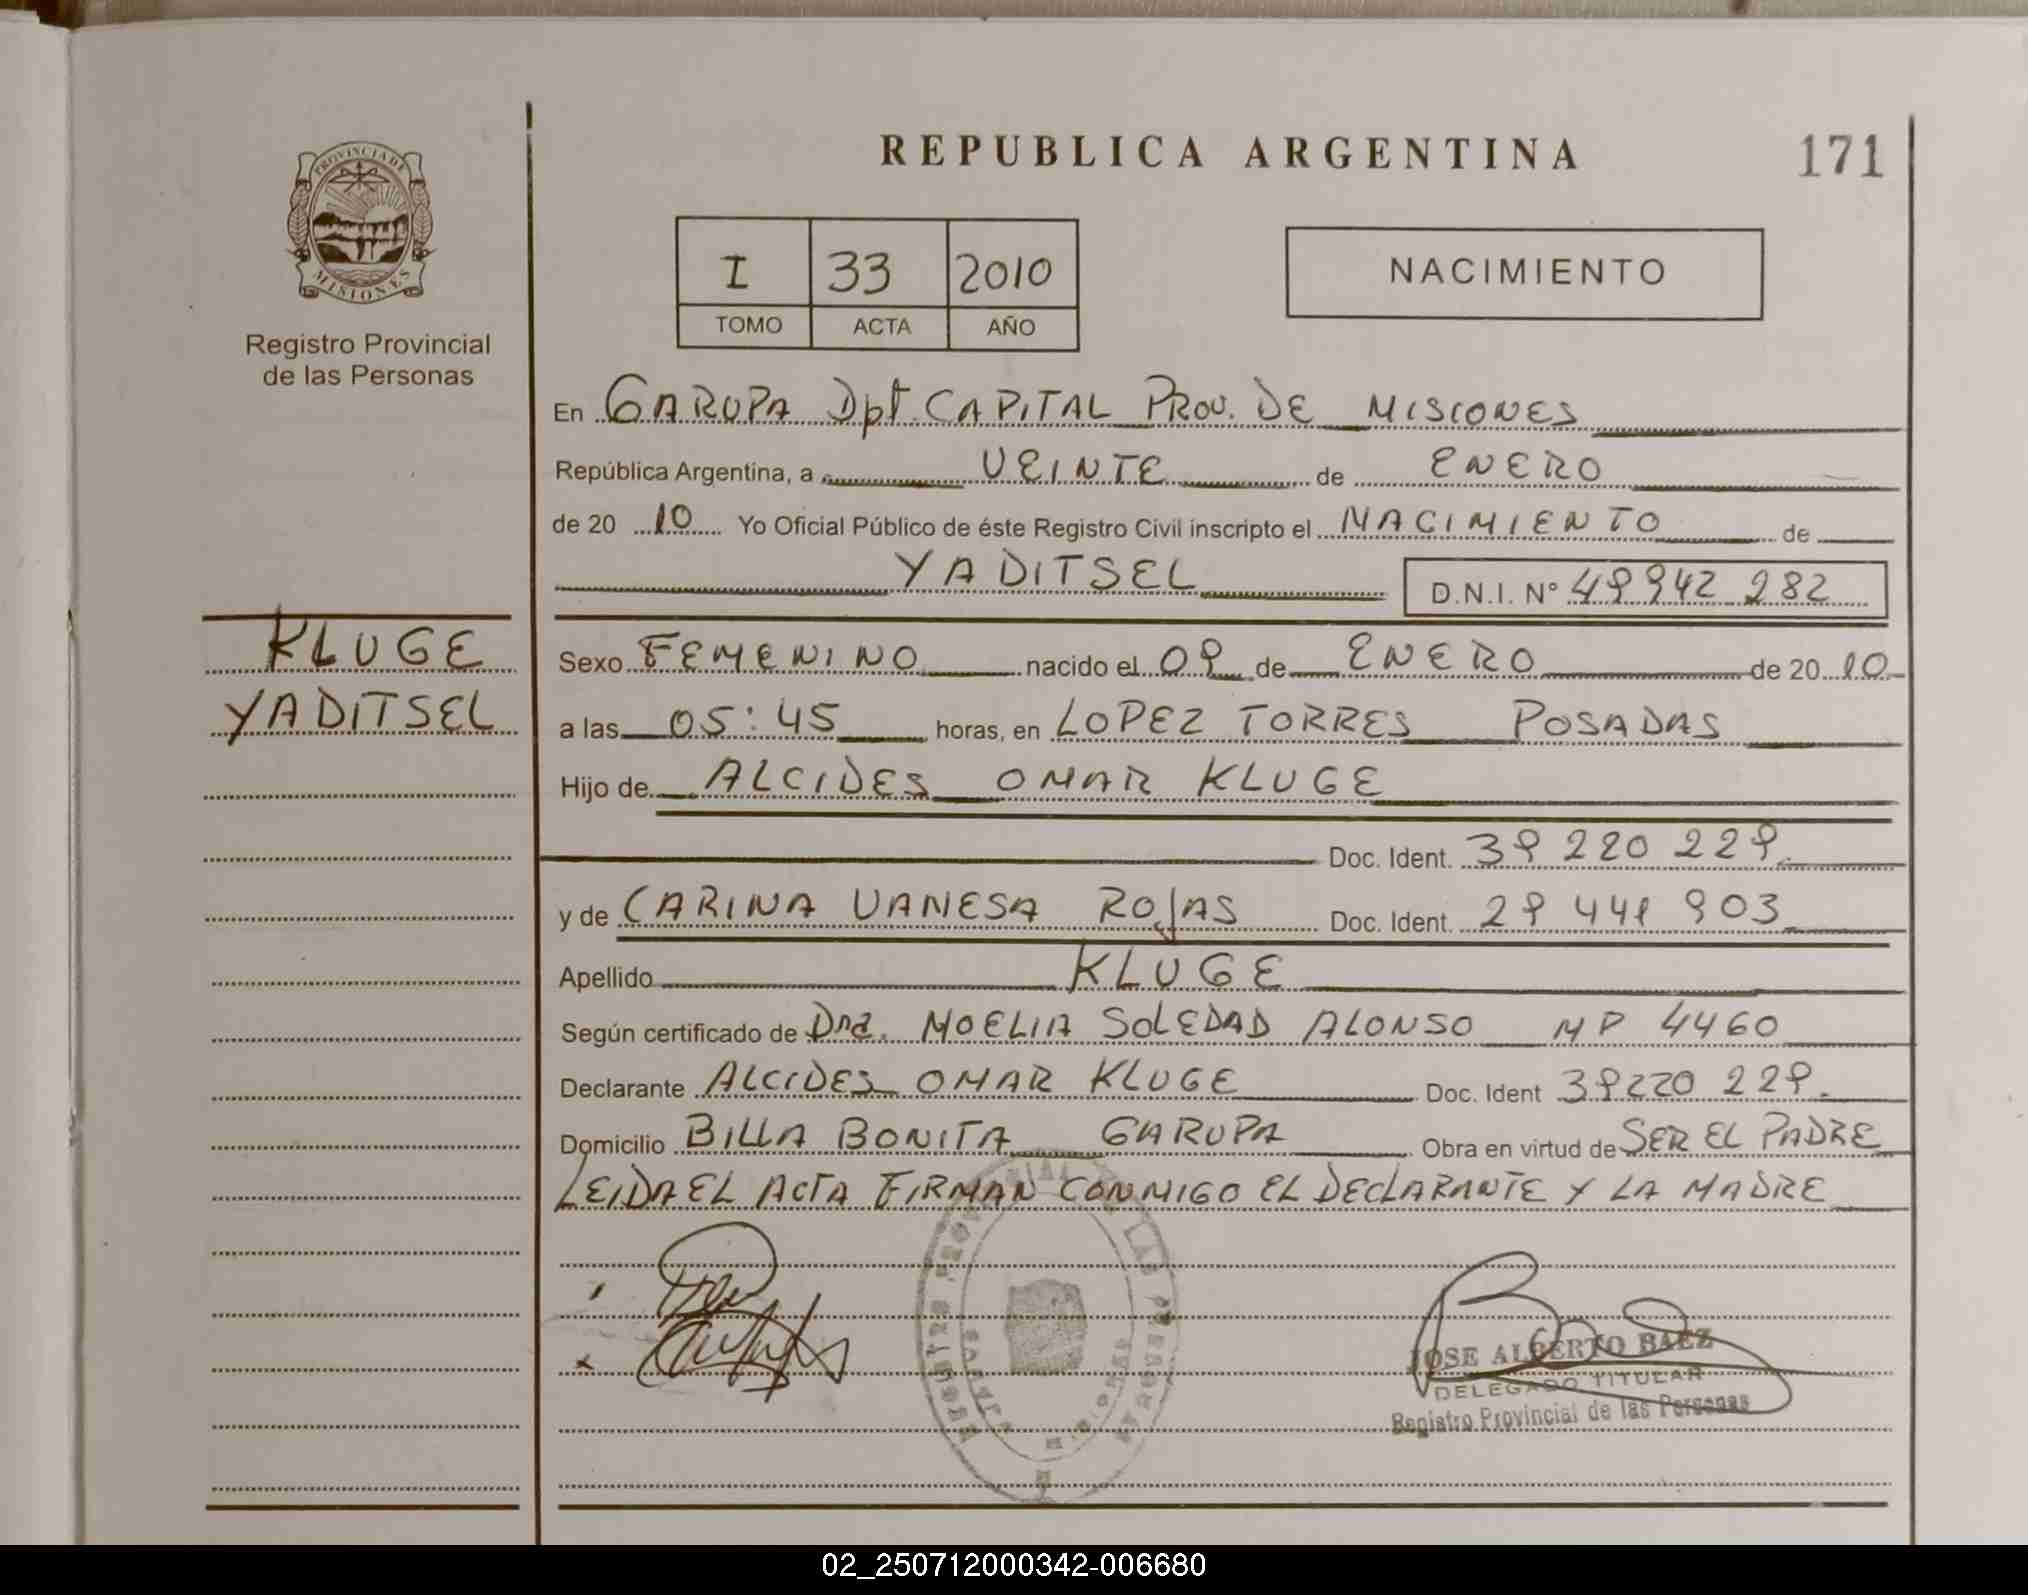 REPUBLICA ARGENTINA
171
PROVINCIA DE
MISIONES
Registro Provincial
de las Personas
I 33 2010
TOMO ACTA AÑO
NACIMIENTO
En GARUPA Dpt. CAPITAL PROV. DE MISIONES
República Argentina, a VEINTE de ENERO
de 20 10 Yo Oficial Público de éste Registro Civil inscripto el NACIMIENTO de
YADITSEL D.N.I. Nº 49942 282
KLUGE
YADITSEL
Sexo FEMENINO nacido el 09 de ENERO de 20 10
a las 05:45 horas, en LOPEZ TORRES POSADAS
Hijo de ALCIDES OMAR KLUGE
Doc. Ident. 39 220 229
y de CARINA VANESA ROJAS Doc. Ident. 29 441 903
Apellido KLUGE
Según certificado de Dra. NOELIA SOLEDAD ALONSO MP 4460
Declarante ALCIDES OMAR KLUGE Doc. Ident 39220 229.
Domicilio BILLA BONITA GARUPA Obra en virtud de SER EL PADRE
LEIDA EL ACTA FIRMAN CONMIGO EL DECLARANTE Y LA MADRE
REGISTRO PROVINCIAL DE LAS PERSONAS
GARUPA
MISIONES
JOSE ALBERTO BAEZ
DELEGADO TITULAR
Registro Provincial de las Personas
02_250712000342-006680